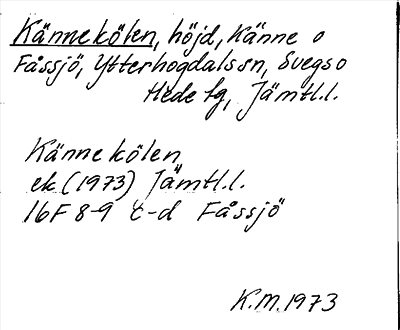 Kännekölen, höjd, Känne o
Fåssjö, Ytterhogdals sn, Svegs o
Hede tg, Jämtl.l.
Kännekölen
ek (1973) Jämtl.l.
16F 8-9 c-d Fåssjö
K.M. 1973